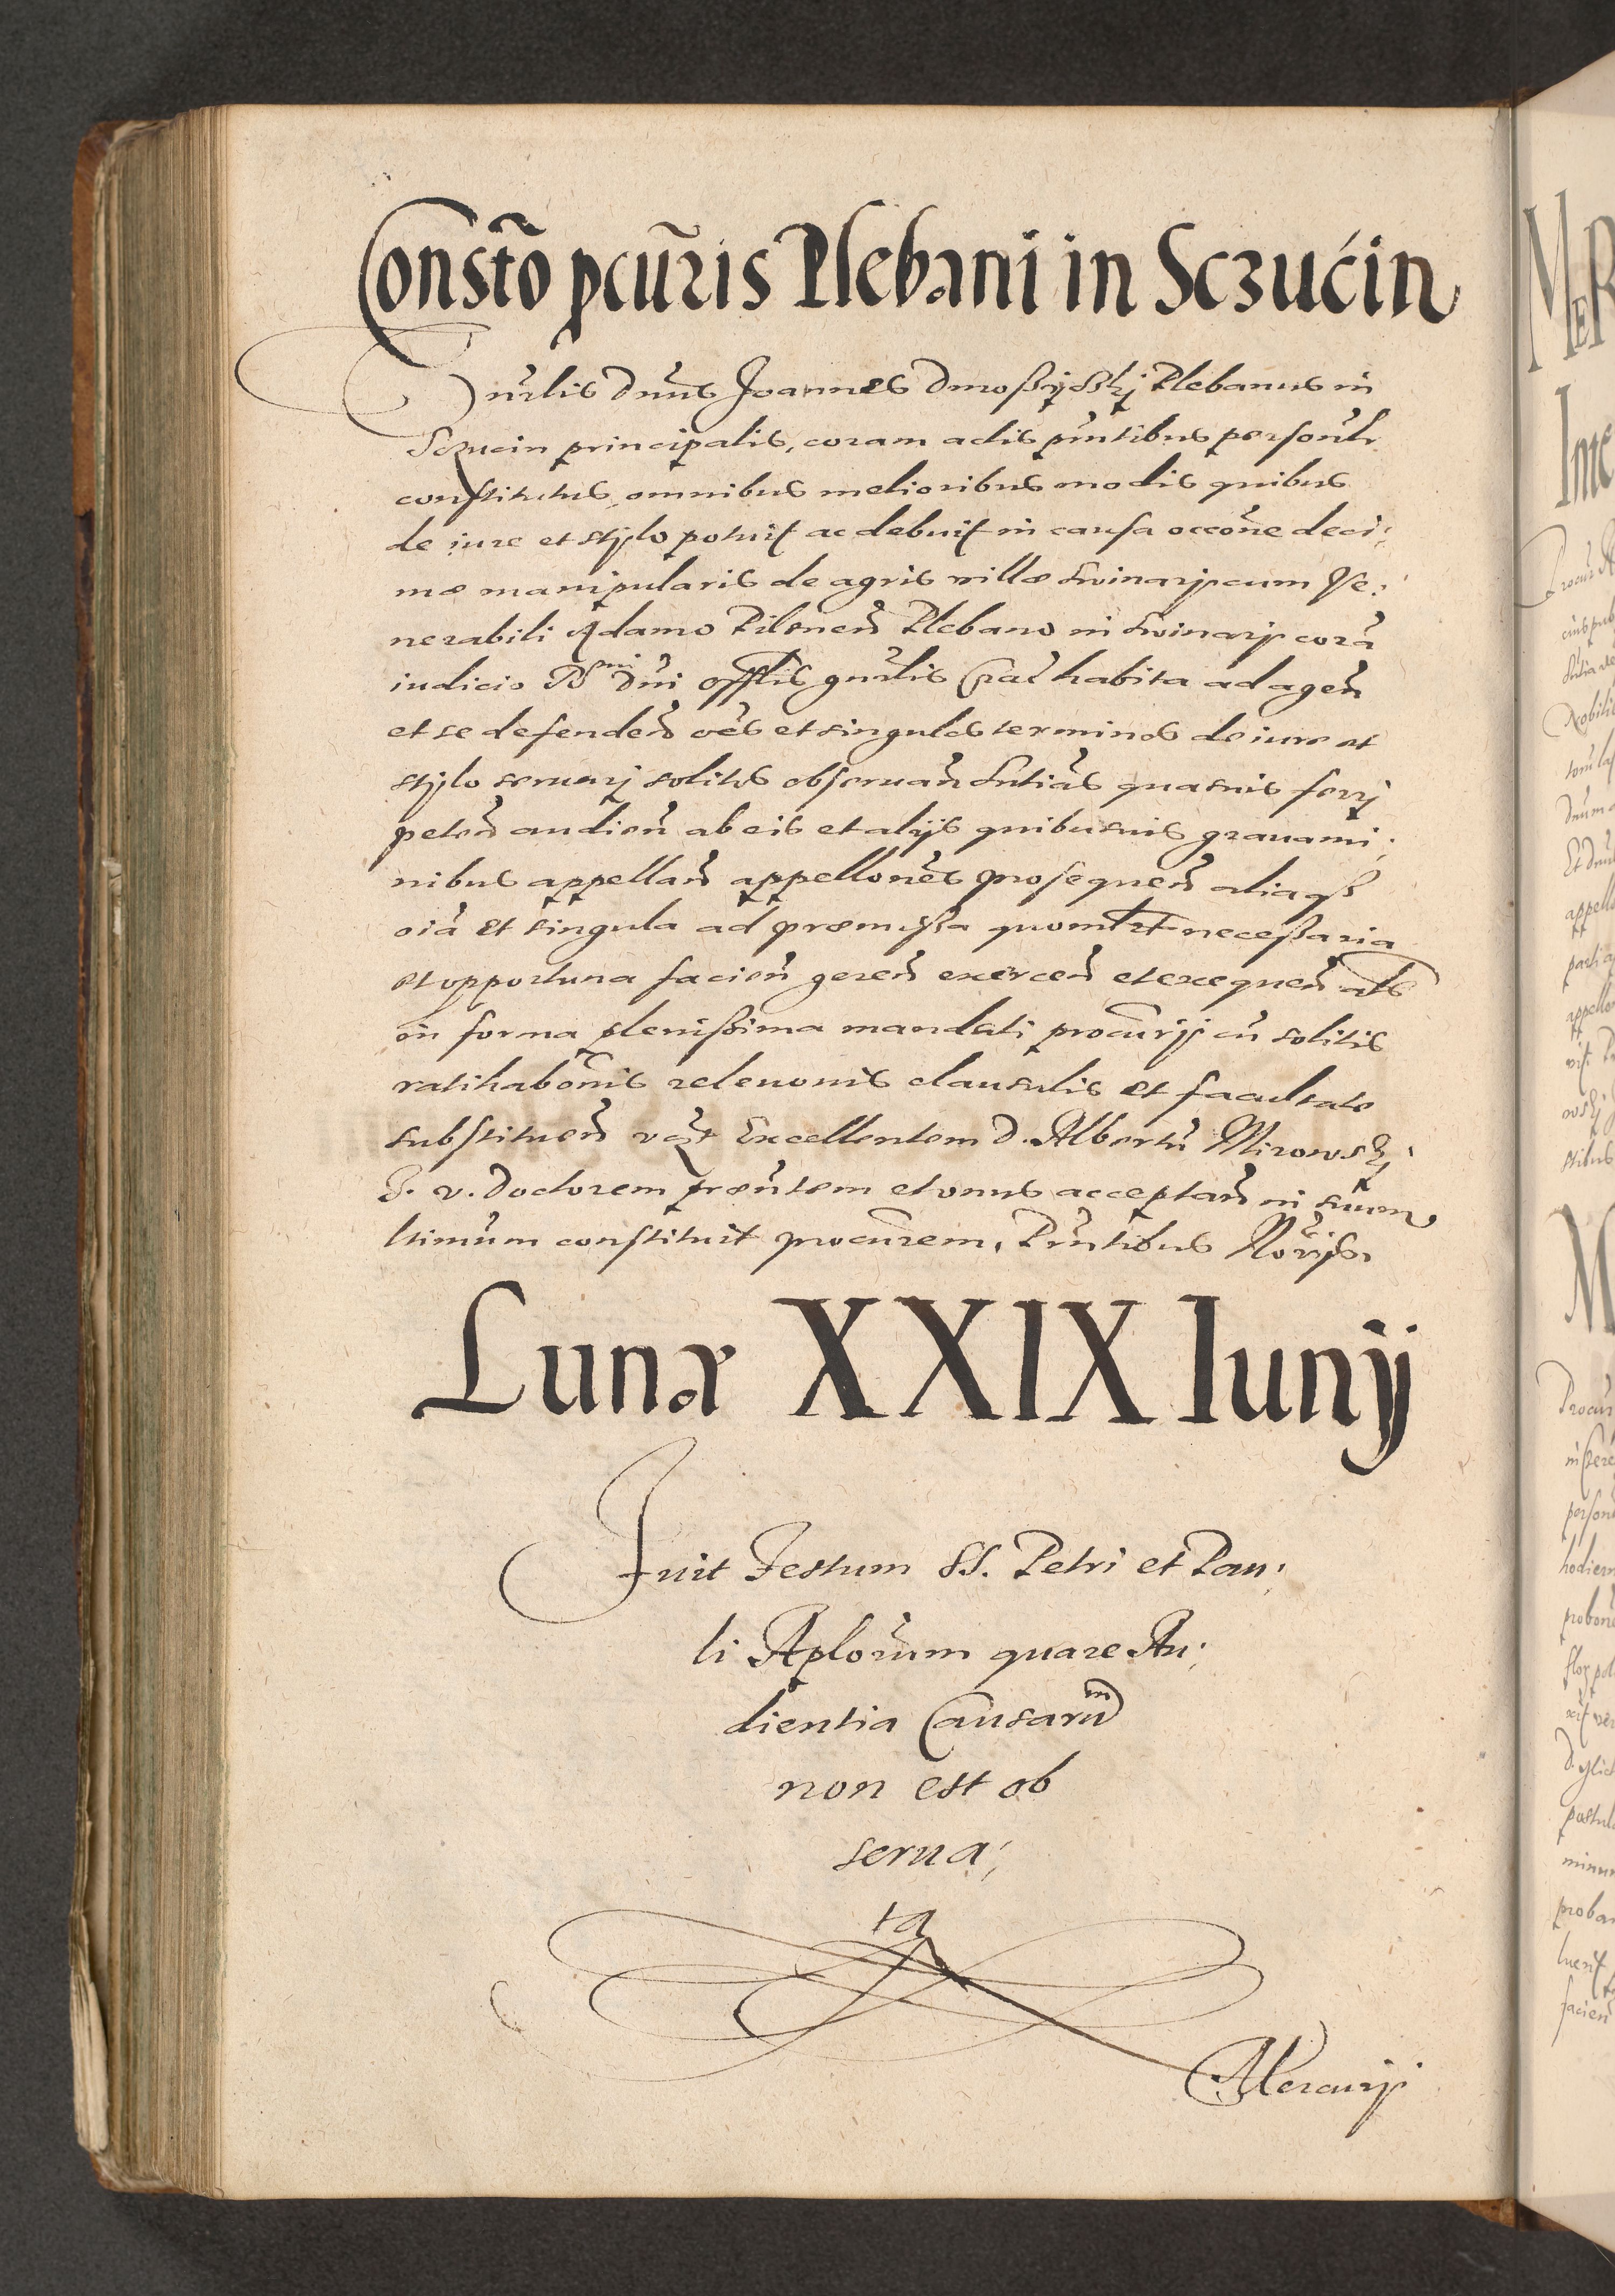 Constõ pcũris Plebani in Sczućin
Dñs Joannes Dmoßijskj Plebanus in
Sczucin principalis, coram actis pñtibus personlr
constitutus, omnibus melioribus modis quibus
de iure et stylo potuit ac debuit in causa occõne deci:
mæ manipularis de agris villæ Swinary cum Ve:
nerabili Adamo Pilsneñ Plebano in Swinary corã
iudicio Rmi Dñi Offlis gñrlis Crac habita ad ageñ
et se defendeñ oẽs et singulos terminos de iure et
stylo seruarj solitos obseruañ Sntias quasuis ferrj
peteñ audieñ ab eis et alijs quibusuis grauami:
nibus appellañ appellones prosequeñ aliaqß
oiã et singula ad præmißa quomlt neceßaria
et opportuna facieñ gereñ exerceñ et exequeñ als
in forma plenißima mandati procũrij cũ solitis
ratihabõnis releuonis clausulis et facultate
substitueñ Excellentem D. Albertũ Mirowskj
J. v. Doctorem præñtem et onus acceptañ in suum
ltimũm constituit procũrem, Pñtibus Nõrijs.
Lunæ XXIX Iunij
Fuit Festum SS. Petri et Pau:
li Aplorũm quare Au:
dientia Causarum
non est ob
serua:
ta
Mercurij